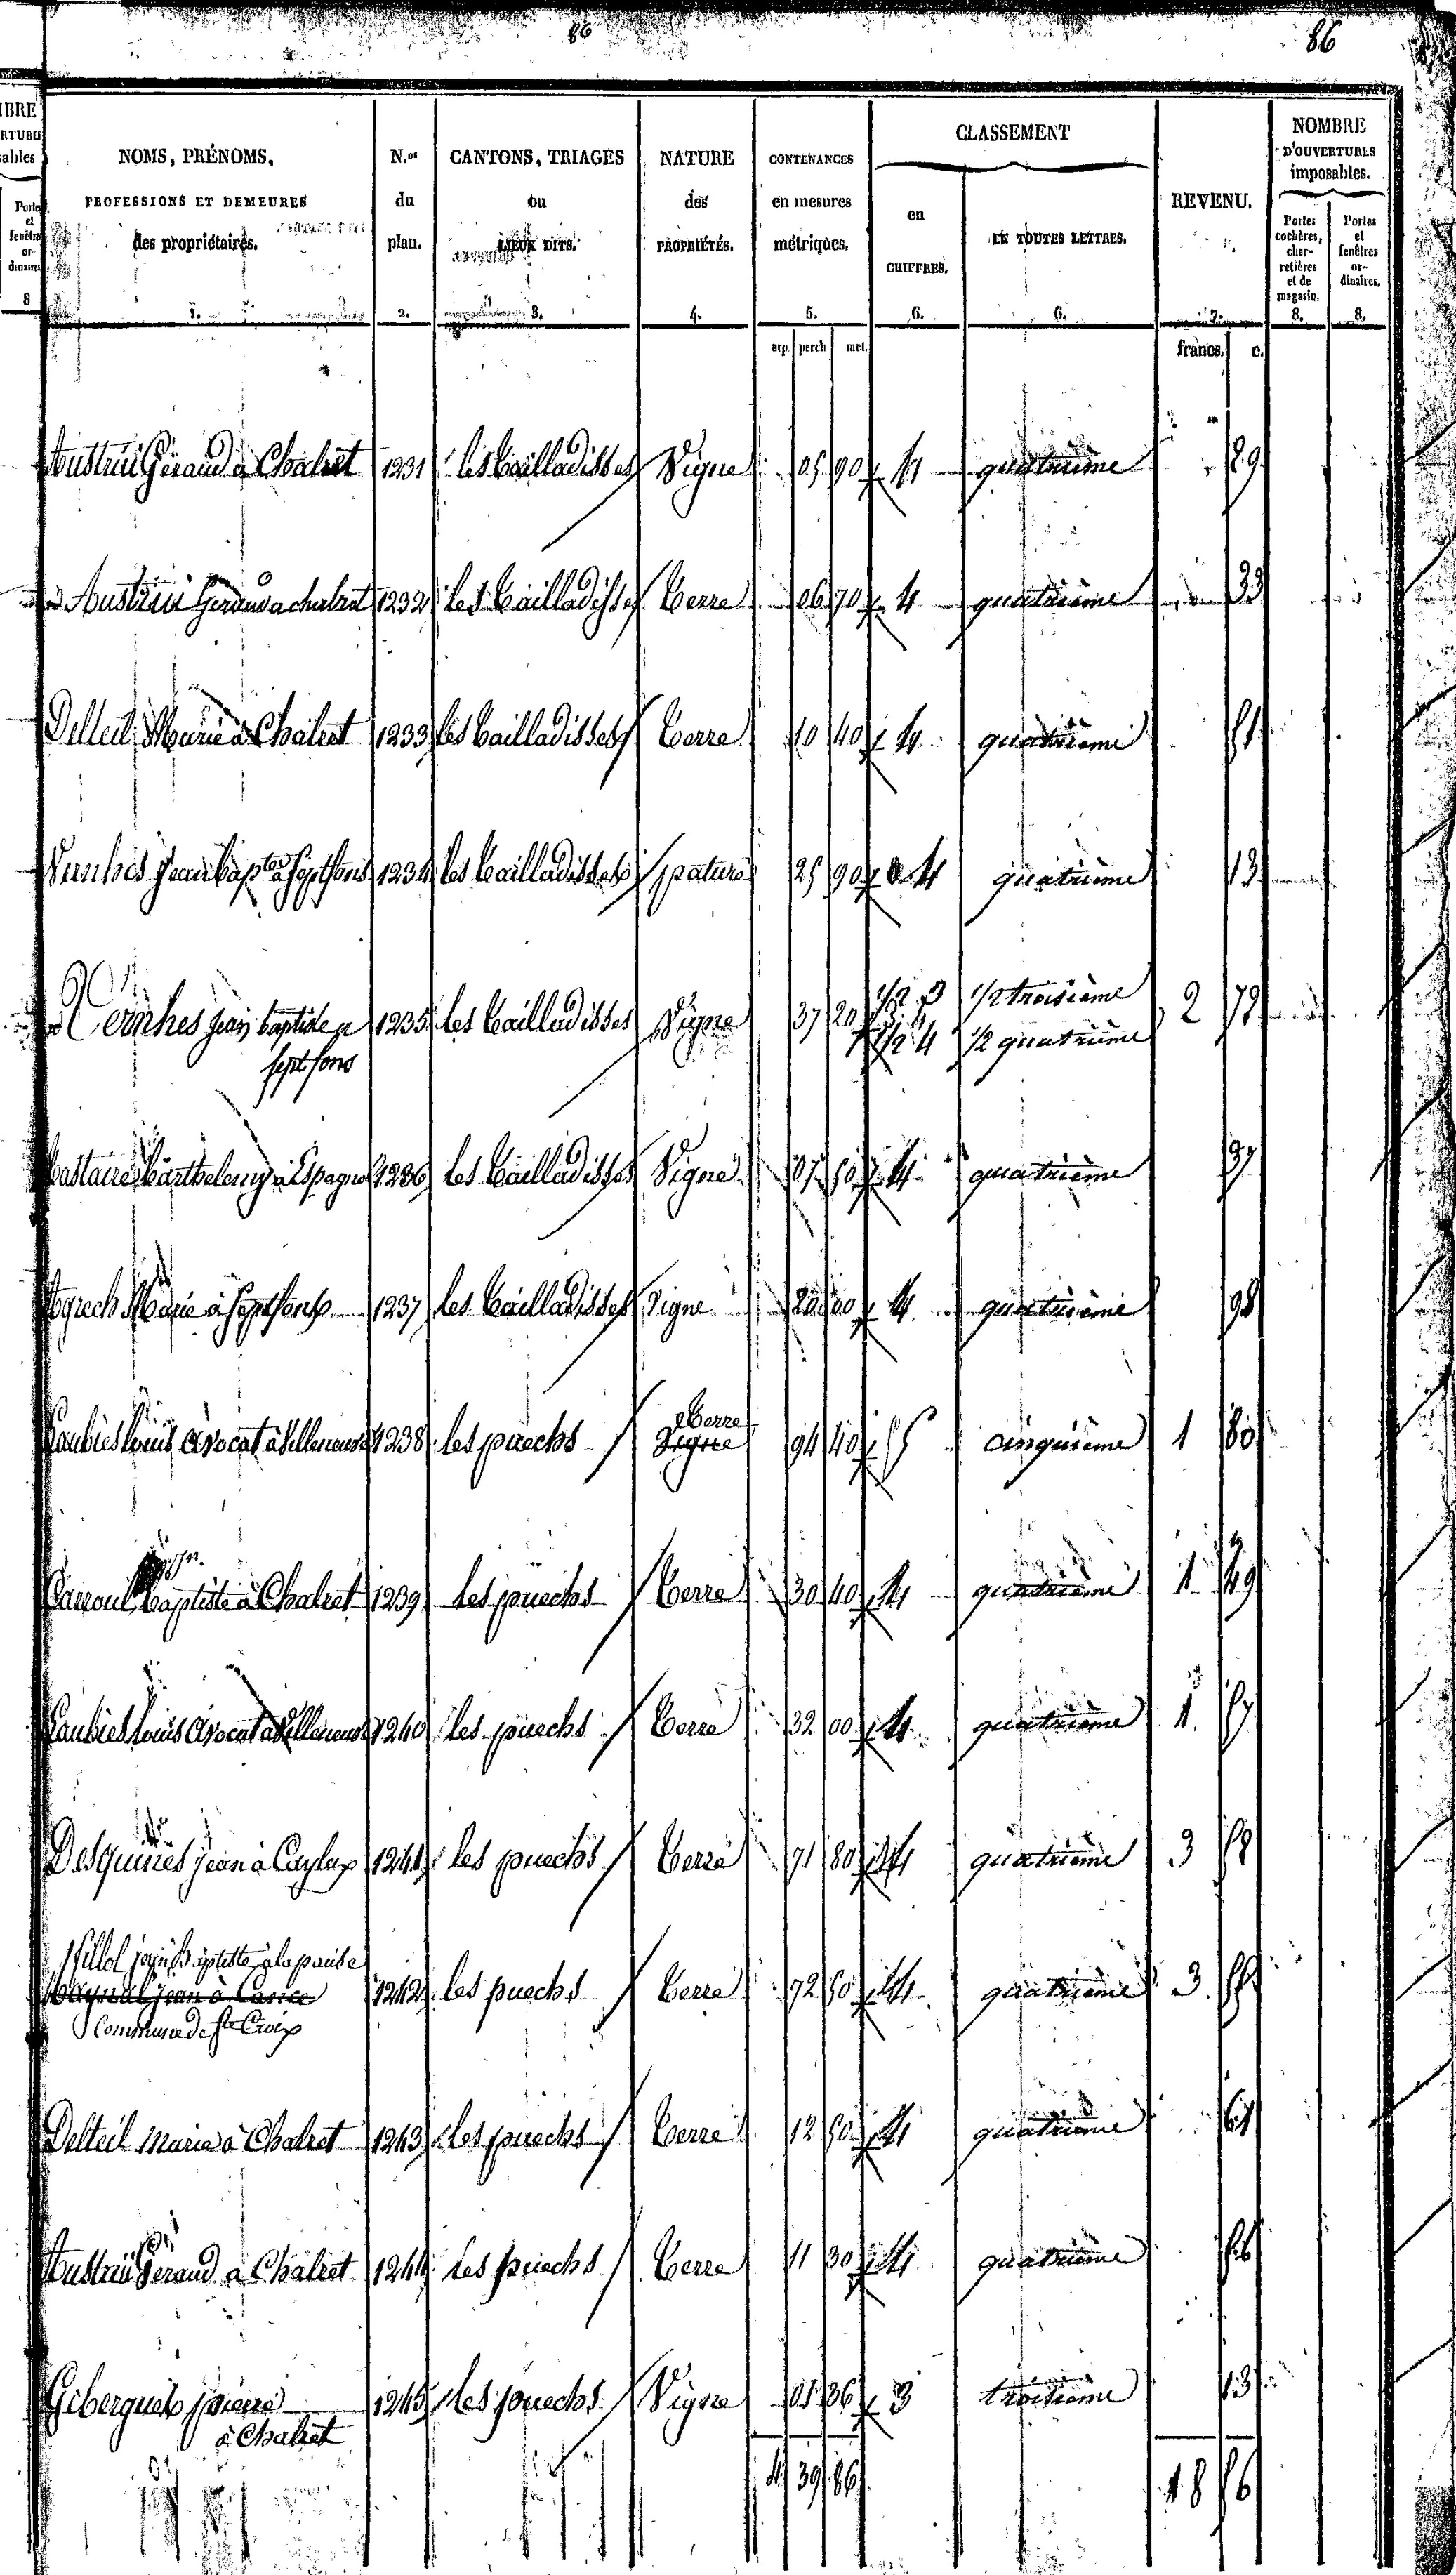 86 86
NOMS, PRÉNOMS, PROFESSIONS ET DEMEURES des propriétaires. 1.
N.os du plan. 2.
CANTONS, TRIAGES ou LIEUX DITS. 3.
NATURE des PROPRIÉTÉS. 4.
CONTENANCES en mesures métriques. 5.
CLASSEMENT
en CHIFFRES. 6.
EN TOUTES LETTRES. 6.
REVENU. 7.
NOMBRE D'OUVERTURES imposables.
Portes cochères, charretières et de magasin. 8.
Portes et fenêtres ordinaires. 8.
arp. perch met. francs. c.
Austrüi Géraud à Chalret 1231 les Cailladisses Vigne 05 90 4 quatrième 29
Austrüi Geraud a chalret 1232 les Cailladisses Terre 06 70 4 quatrième 33
Delteil Marie à Chalret 1233 les Cailladisses Terre 10 40 4 quatrième 51
Vernhes Jean Bapte à Septfons 1234 les Cailladisses pature 25 90 4 quatrième 13
Vernhes Jean baptiste a 1235 les Cailladisses Vigne 37 20 1/2 3 1/2 troisième 2 79
sept fons 1/2 4 1/2 quatrième
Barthelemy à Espagne 1236 les Cailladisses Vigne 07 50 4 quatrième 37
Marie à Septfons 1237 les Cailladisses Vigne 20 00 4 quatrième 98
Terre
Louis avocat à Villeneuve 1238 les puechs Vigne 94 40 5 cinquième 1 80
Carroul Baptiste à Chalret 1239 les puechs Terre 30 40 4 quatrième 1 49
Louis avocat a Villeneuve 1240 les puechs Terre 32 00 4 quatrième 1 57
Desquines Jean à Caylux 1241 les puechs Terre 71 80 4 quatrième 3 52
Fillol jean Baptiste à la pause
jean à 1242 les puechs Terre 72 50 4 quatrième 3 55
Commune de Ste Croix
Delteil Marie à Chalret 1243 les puechs Terre 12 50 4 quatrième 61
Austrüi Geraud à Chalret 1244 les puechs Terre 11 30 4 quatrième
Gibergues pierre 1245 les puechs Vigne 01 36 3 troisième 13
à Chalret
4 39 86 18 56